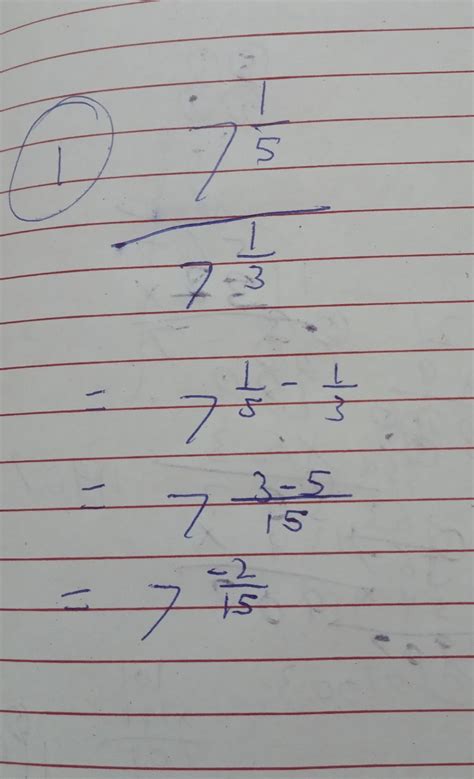 1
7^{\frac{1}{5}}
7^{\frac{1}{3}}
= 7^{\frac{1}{5} - \frac{1}{3}}
= 7^{\frac{3-5}{15}}
= 7^{\frac{-2}{15}}